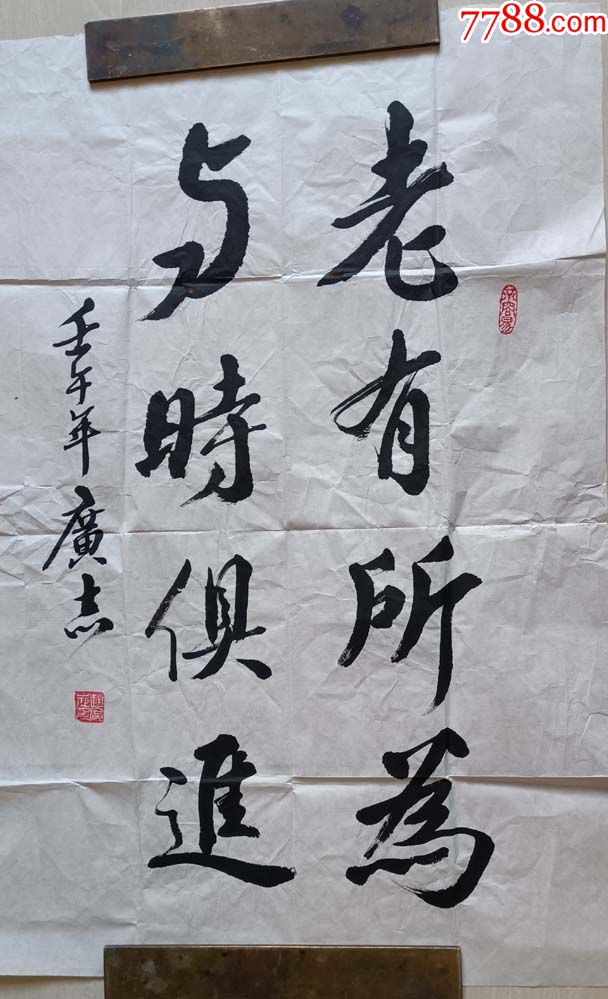 7788.com
老有所為
与時俱進
壬午年廣志